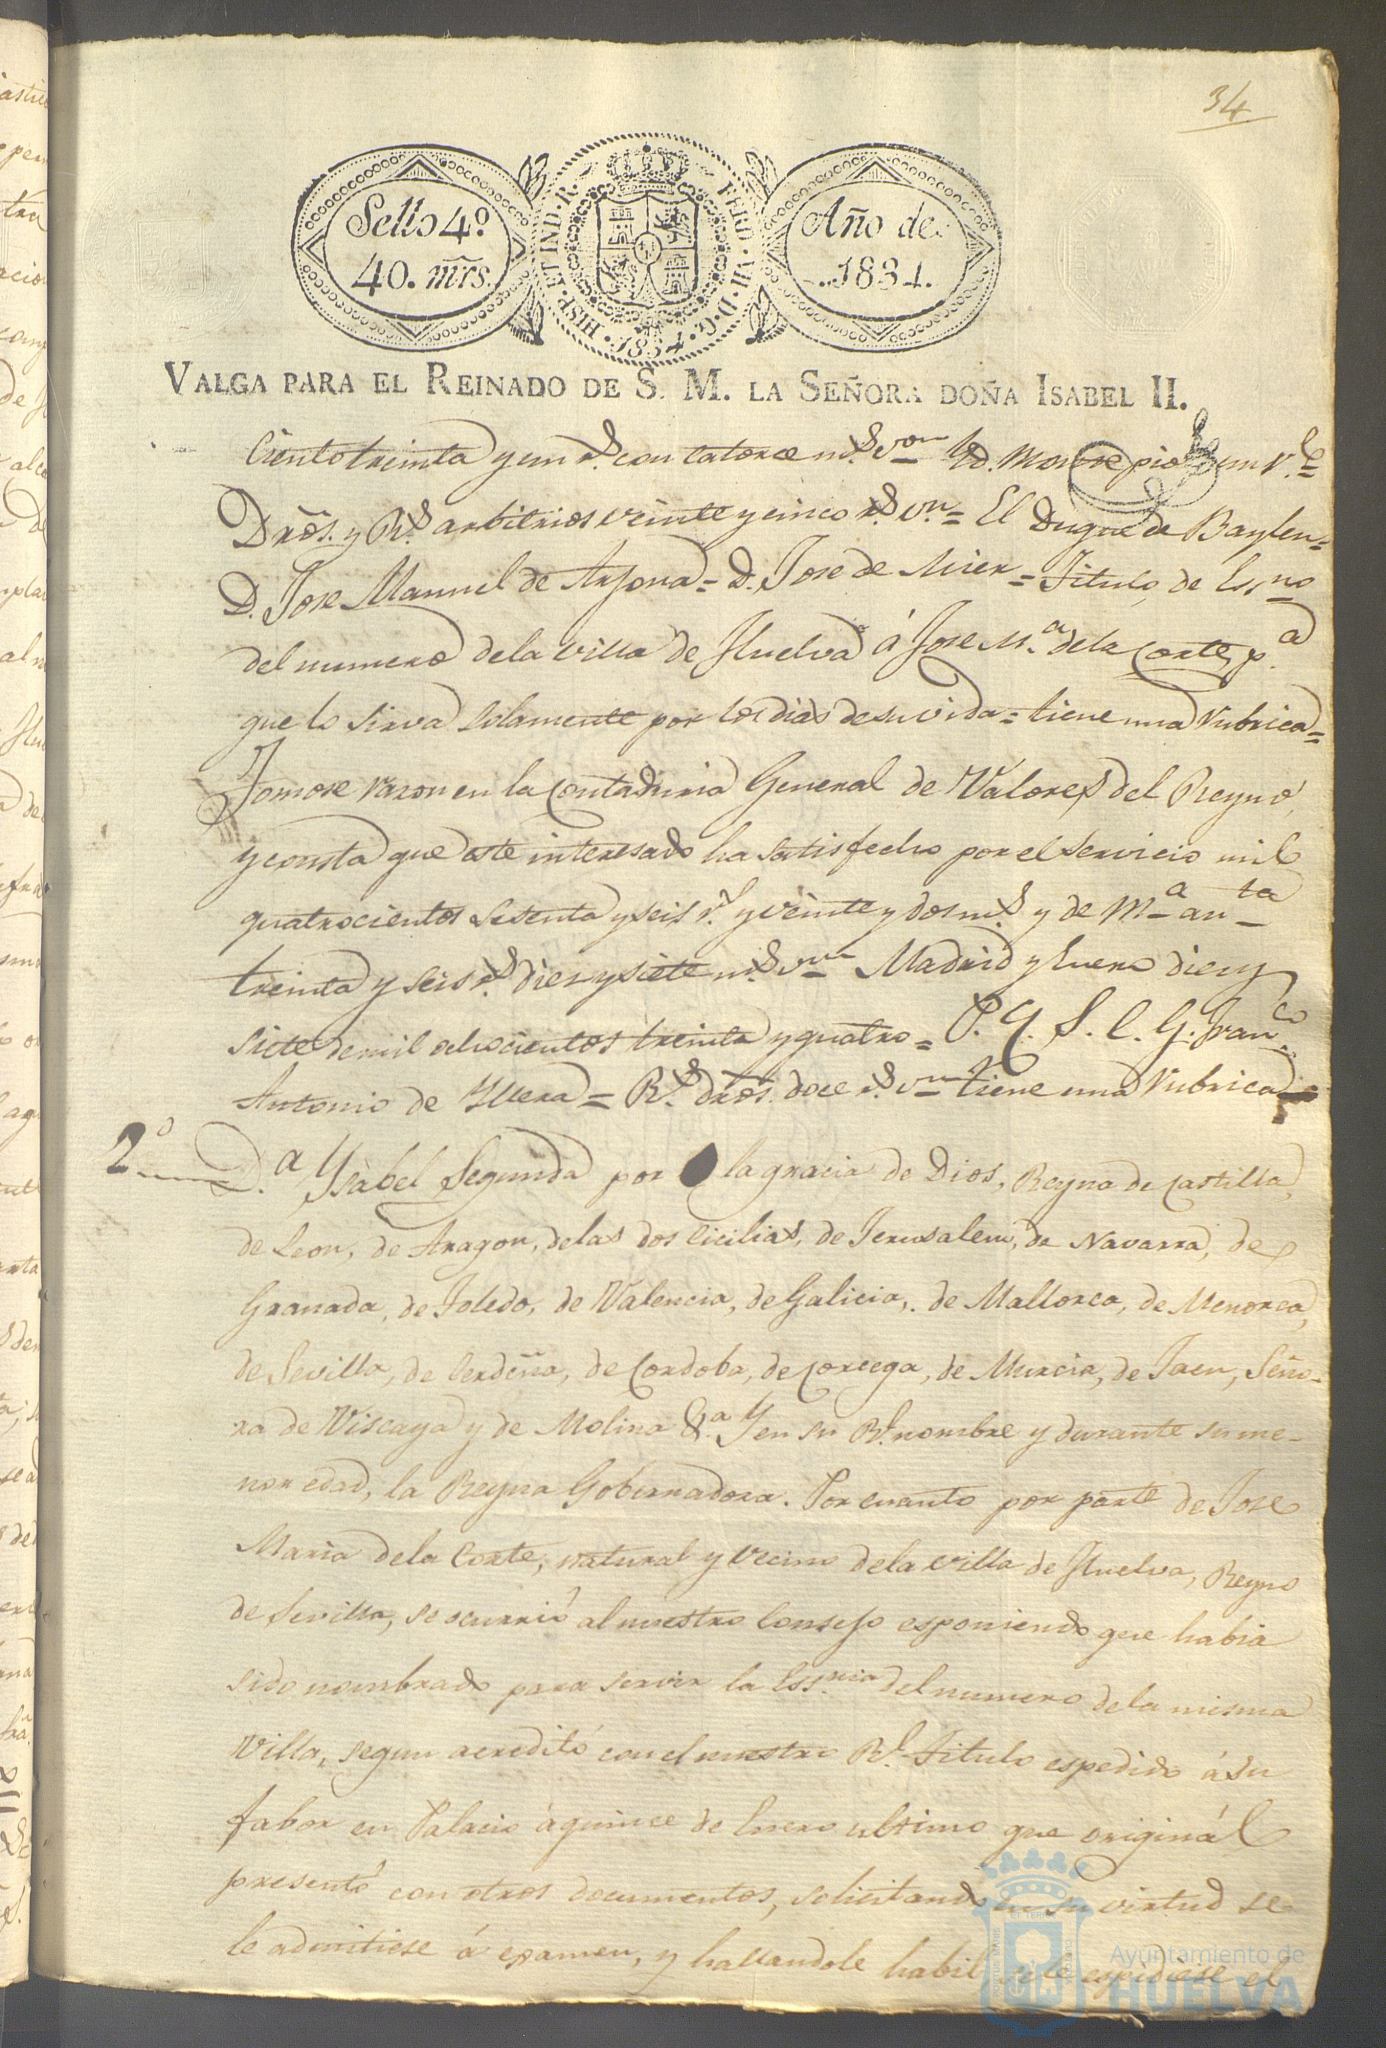 34
Sello 4.º
40. mrs.
HISP. ET IND. R.
FERD. VII. D. G.
1834
Año de
1834.
VALGA PARA EL REINADO DE S. M. LA SEÑORA DOÑA ISABEL II.
Ciento treinta y un r.s con catorce m.s von Yd. Monte pio un r.l=
Drõs. y R.s arbitrios veinte y cinco r.s vn= El Duque de Baylen=
D. Jose Manuel de Arjona= D. Jose de Mier= Titulo de Essno
del numero dela villa de Huelva á Jose M.a dela Corte, p.a
que lo sirva solamente por los dias de su vida= tiene una rubrica=
Tomose razon en la Contaduria General de Valores del Reyno,
y consta que este interesado ha satisfecho por el servicio mil
quatrocientos sesenta y seis r.s y veinte y dos m.s y de M.a an.ta
treinta y seis r.s diez y siete m.s von Madrid y Enero diez y
siete de mil ochocientos treinta y quatro= P. Y. S. C. G. Fran.co
Antonio de Yllera= R.s drõs. doce r.s vn tiene una rubrica=
2.º D.a Ysabel Segunda por la gracia de Dios, Reyna de Castilla,
de Leon, de Aragon, delas dos Cicilias, de Jerusalem, de Navarra, de
Granada, de Toledo, de Valencia, de Galicia, de Mallorca, de Menorca,
de Sevilla, de Cerdeña, de Cordoba, de Corcega, de Murcia, de Jaen, Seño-
ra de Viscaya y de Molina &.a Y en su R.l nombre y durante su me-
nor edad, la Reyna Gobernadora. Por cuanto por parte de Jose
Maria dela Corte, natural y vecino dela villa de Huelva, Reyno
de Sevilla, se ocurrió al nuestro Consejo esponiendo que habia
sido nombrado para servir la Ess.nia del numero dela misma
Villa, segun acreditó con el nuestro R.l Titulo espedido á su
fabor en Palacio á quince de Enero ultimo que originál
presentó con otros documentos, solicitando en su virtud se
le admitiese á examen, y hallandole habil se le espidiese el
Ayuntamiento de
HUELVA